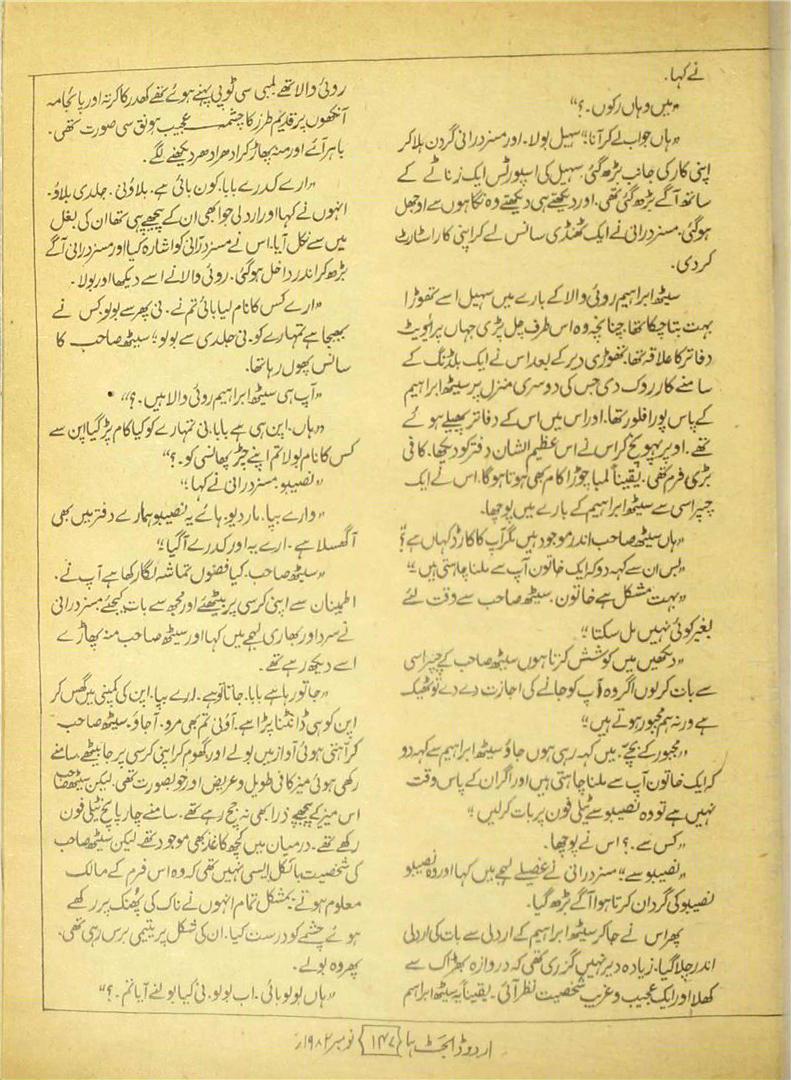 نے کہا۔
”میں وہاں رکوں۔؟“
”ہاں جواب لے کر آنا؛“ سہیل بولا۔ اور مسز درانی گردن ہلا کر
اپنی کار کی جانب بڑھ گئی۔ سہیل کی اسپورٹس ایک زناٹے کے
ساتھ آگے بڑھ گئی تھی۔ اور دیکھتے ہی دیکھتے وہ نگاہوں سے اوجھل
ہوگئی۔ مسز درانی نے ایک ٹھنڈی سانس لے کر اپنی کار اسٹارٹ
کردی۔
سیٹھ ابراہیم روئی والا کے بارے میں سہیل اسے تھوڑا
بہت بتا چکا تھا۔ چنانچہ وہ اس طرف چل پڑی جہاں پرائیویٹ
دفاتر کا علاقہ تھا۔ تھوڑی دیر کے بعد اس نے ایک بلڈنگ کے
سامنے کار روک دی جس کی دوسری منزل پر سیٹھ ابراہیم
کے پاس پورا فلور تھا۔ اور اس میں اس کے دفاتر پھیلے ہوئے
تھے۔ اوپر پہونچ کر اس نے اس عظیم الشان دفتر کو دیکھا۔ کافی
بڑی فرم تھی۔ یقیناً لمبا چوڑا کام بھی ہوتا ہوگا۔ اس نے ایک
چپراسی سے سیٹھ ابراہیم کے بارے میں پوچھا۔
”ہاں سیٹھ صاحب اندر موجود ہیں مگر آپ کا کارڈ کہاں ہے؟“
”بس ان سے کہہ دو کہ ایک خاتون آپ سے ملنا چاہتی ہیں“
”بہت مشکل ہے خاتون۔ سیٹھ صاحب سے وقت لئے
بغیر کوئی نہیں مل سکتا“
”دیکھیں میں کوشش کرتا ہوں سیٹھ صاحب کے چپراسی
سے بات کرلوں اگر وہ آپ کو جانے کی اجازت دے دے تو ٹھیک
ہے ورنہ ہم مجبور ہوتے ہیں“
”مجبور کے بچے۔ میں کہہ رہی ہوں جاؤ سیٹھ ابراہیم سے کہہ دو
کہ ایک خاتون آپ سے ملنا چاہتی ہیں اور اگر ان کے پاس وقت
نہیں ہے تو وہ نصیبو سے ٹیلی فون پر بات کرلیں“
”کس سے۔؟ اس نے پوچھا۔
”نصیبو سے“ مسز درانی نے غصیلے لہجے میں کہا اور وہ نصیبو
نصیبو کی گردان کرتا ہوا آگے بڑھ گیا۔
پھر اس نے جاکر سیٹھ ابراہیم کے اردلی سے بات کی اردلی
اندر چلا گیا۔ زیادہ دیر نہیں گزری تھی کہ دروازہ بھڑاک سے
کھلا اور ایک عجیب و غریب شخصیت نظر آئی۔ یقیناً یہ سیٹھ ابراہیم
روئی والا تھے۔ لمبی سی ٹوپی پہنے ہوئے تھے کھدر کا کرتہ اور پائجامہ
آنکھوں پر قدیم طرز کا چشمہ عجیب ہونق سی صورت تھی۔
باہر آئے اور منہ پھاڑ کر ادھر ادھر دیکھنے لگے۔
”ارے کدر رے بابا۔ کون بائی ہے۔ بلاؤ نی۔ جلدی بلاؤ۔
انہوں نے کہا اور اردلی جو ابھی ان کے پیچھے ہی تھا ان کی بغل
میں سے نکل آیا۔ اس نے مسز درانی کو اشارہ کیا اور مسز درانی آگے
بڑھ کر اندر داخل ہوگئی۔ روئی والا نے اسے دیکھا اور بولا۔
”ارے کس کا نام لیا بائی تم نے۔ نی پھر سے بولو کس نے
بھیجا ہے تمہارے کو۔ نی جلدی سے بولو“ سیٹھ صاحب کا
سانس پھول رہا تھا۔
”آپ ہی سیٹھ ابراہیم روئی والا ہیں۔؟“
”ہاں۔ اپن ہی ہے بابا۔ نی تمہارے کو کیا کام پڑ گیا اپن سے
کس کا نام بولا تم اپنے چپڑ پھانسی کو۔؟“
”نصیبو۔ مسز درانی نے کہا“
”وارے بپا۔ مار دیو۔ ہائے یہ نصیبو ہمارے دفتر میں بھی
آگھسلا ہے۔ ارے یہ اور کدر رے آگیا“
”سیٹھ صاحب۔ کیا فضول تماشہ لگا رکھا ہے آپ نے۔
اطمینان سے اپنی کرسی پر بیٹھئے اور مجھ سے بات کیجئے مسز درانی
نے سرد اور بھاری لہجے میں کہا اور سیٹھ صاحب منہ پھاڑے
اسے دیکھ رہے تھے۔
”جا تو رہا ہے بابا۔ جاتا تو ہے۔ ارے بپا۔ اپن کی کمپنی میں گھس کر
اپن کو سی ڈانٹنا پڑا ہے۔ آؤ نی تم بھی مرو۔ آجاؤ۔ سیٹھ صاحب
کراہتی ہوئی آواز میں بولے اور گھوم کر اپنی کرسی پر جا بیٹھے۔ سامنے
رکھی ہوئی میز کافی طویل و عریض اور خوبصورت تھی۔ لیکن سیٹھ صاحب
اس میز کے پیچھے ذرا بھی نہ جچ رہے تھے۔ سامنے چار پانچ ٹیلی فون
رکھے تھے۔ درمیان میں کچھ کاغذ بھی موجود تھے لیکن سیٹھ صاحب
کی شخصیت بالکل ایسی نہیں تھی کہ وہ اس فرم کے مالک
معلوم ہوتے۔ بمشکل تمام انہوں نے ناک کی پھننگ پر رکھے
ہوئے چشمے کو درست کیا۔ ان کی شکل پر یتیمی برس رہی تھی۔
پھر وہ بولے۔
”ہاں بولو بائی۔ اب بولو۔ نی کیا بولنے آیا تم۔؟“
اردو ڈائجسٹ ہما ۱۴۷ نومبر ۱۹۸۲ء